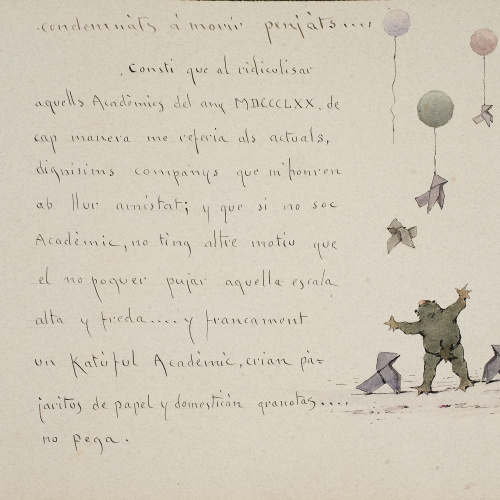 condemnats á morir penjàts....
Consti que al ridiculisar
aquells Acadèmics del any MDCCCLXX, de
cap manera me referia als actuals,
dignisims companys que m'honren
ab llur amistat; y que si no soc
Acadèmic, no ting altre motiu que
el no poguer pujar aquella escala
alta y freda.... y francament
un Katúful Acadèmic, crian pà-
jaritus de papel y domestican granotas....
no pega.